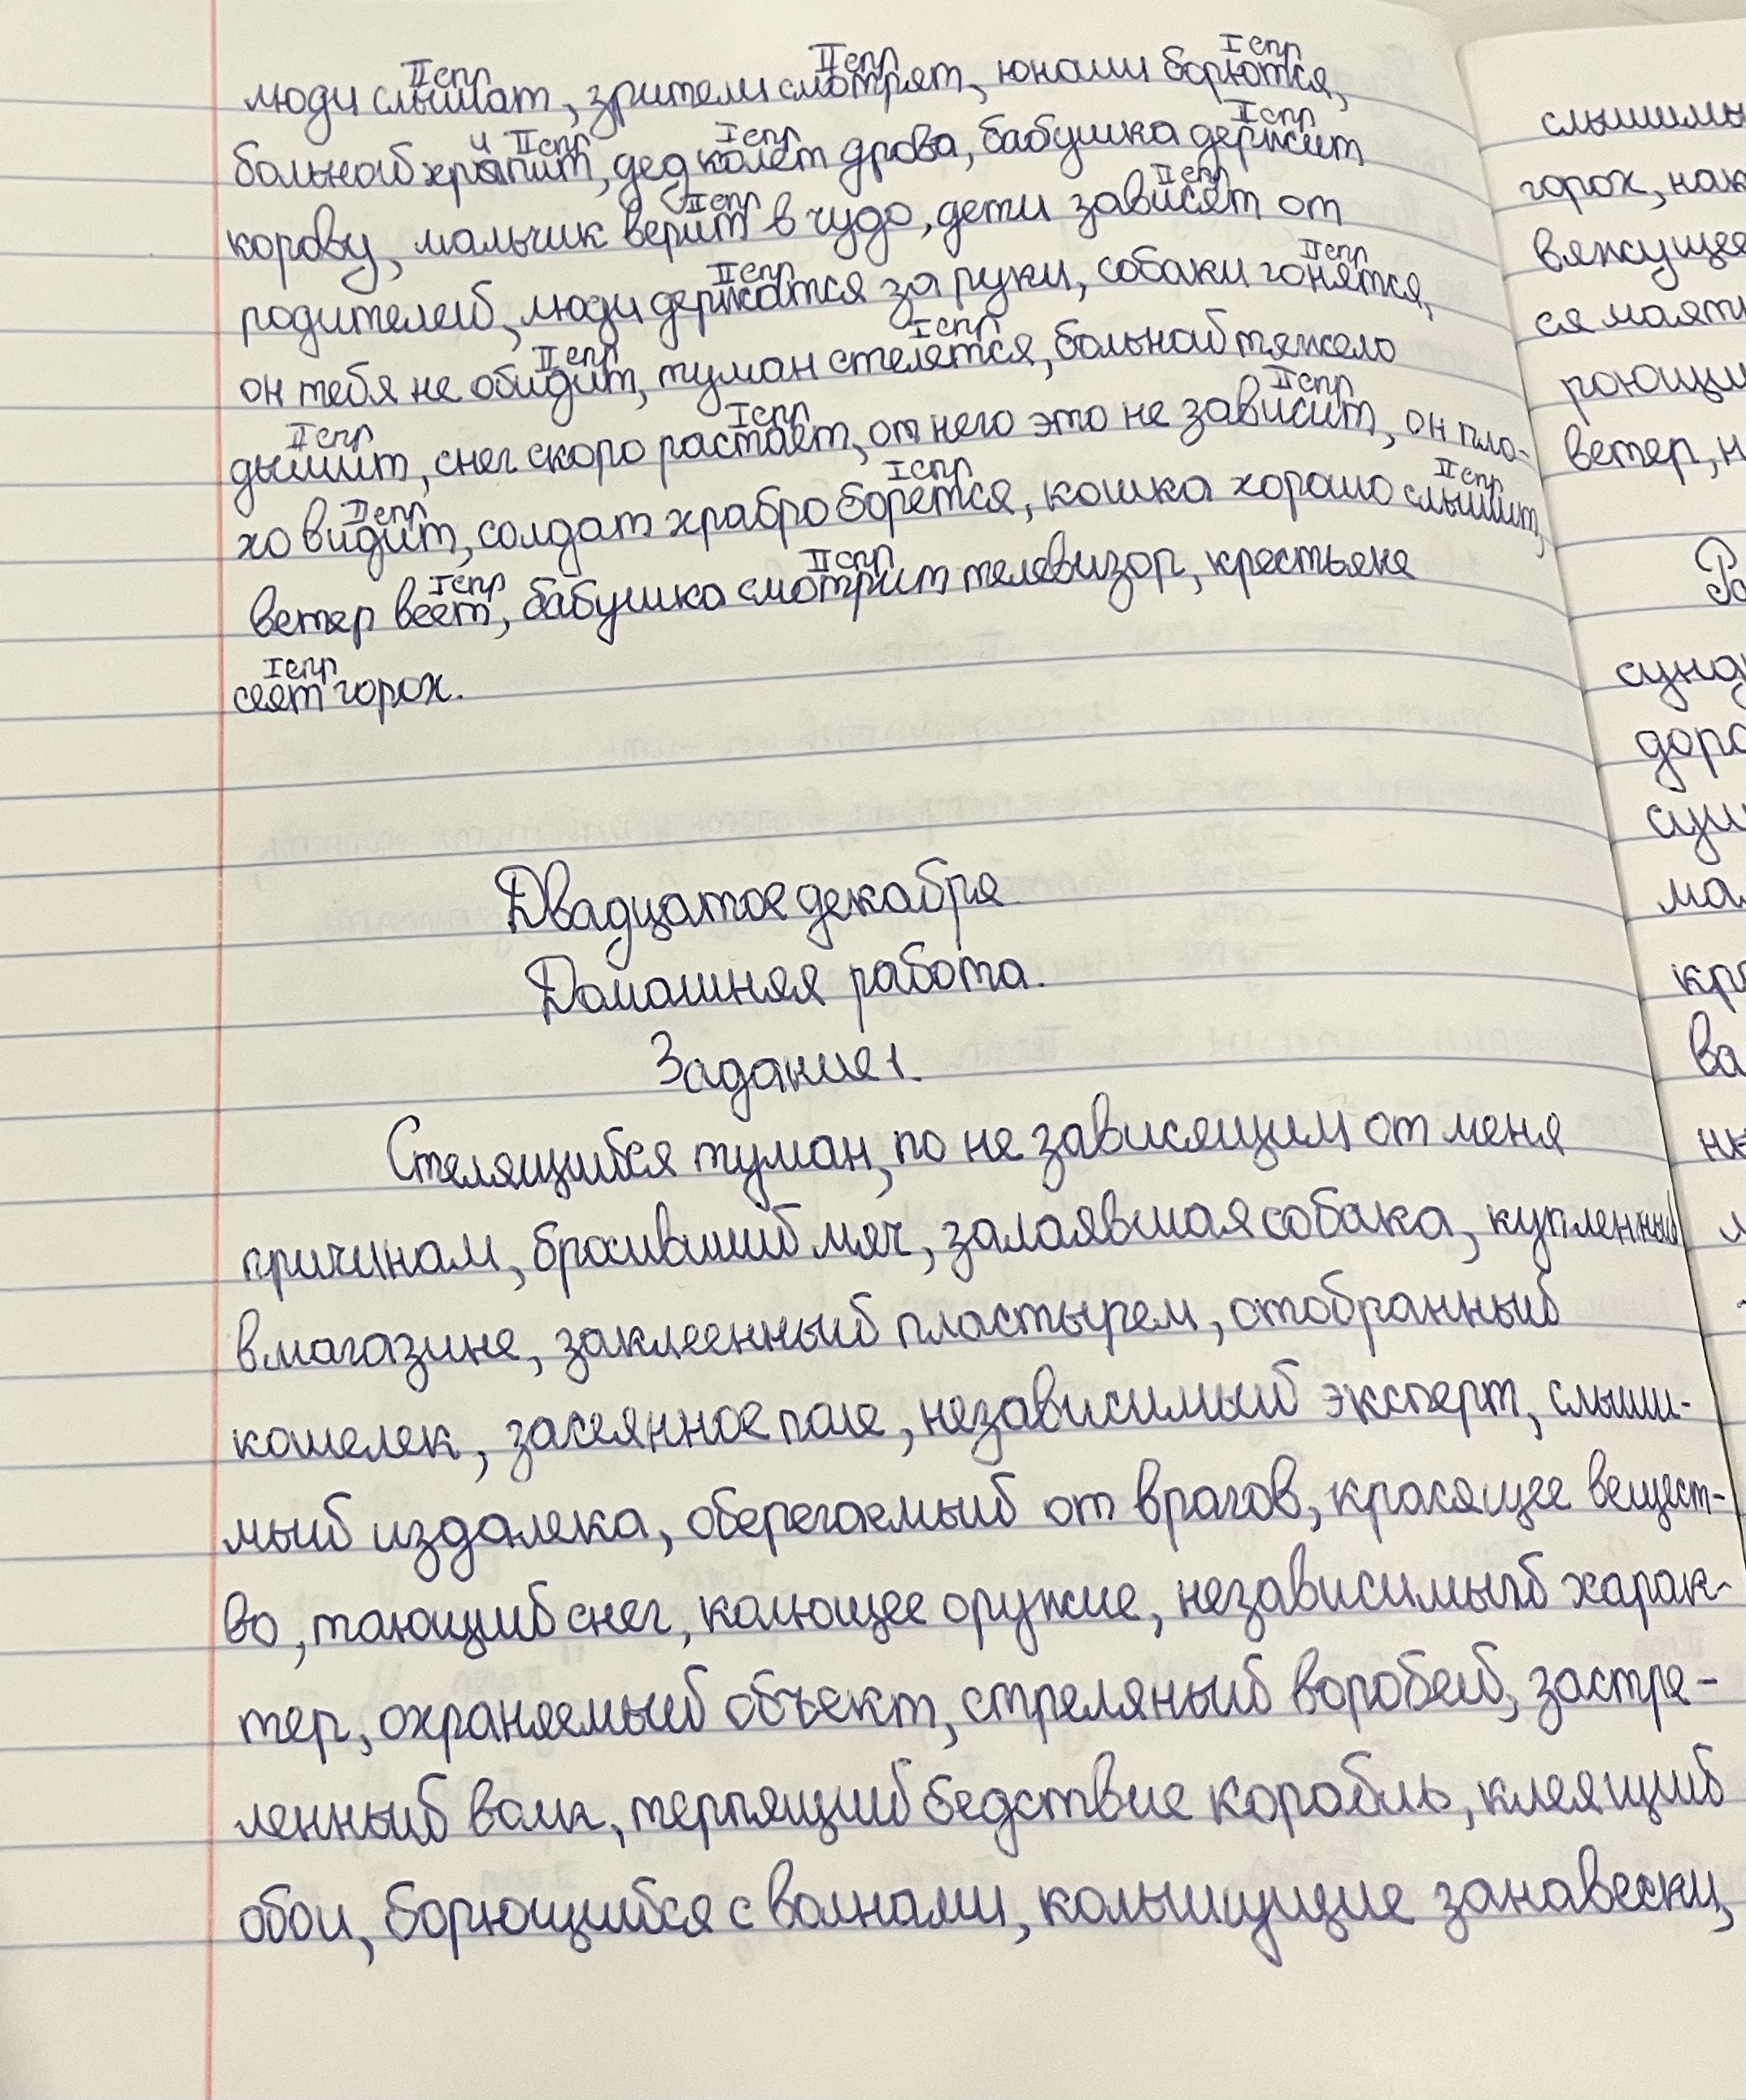 II спр II спр I спр
люди слышат, зрители смотрят, юноши борются,
и II спр I спр I спр
больной хрыпит, дед колет дрова, бабушка держит
II спр II спр
корову, мальчик верит в чудо, дети зависят от
II спр II спр
родителей, люди держатся за руки, собаки гонятся,
II спр I спр
он тебя не обидит, туман стелятся, больной тяжело
II спр I спр II спр
дышит, снег скоро растает, от него это не зависит, он пло-
II спр I спр II спр
хо видит, солдат храбро борется, кошка хорошо слышит,
I спр II спр
ветер веет, бабушка смотрит телевизор, крестьяне
I спр
сеят горох.
Двадцатое декабря
Домашняя работа.
Задание 1.
Стелящийся туман, по не зависящим от меня
причинам, бросивший мяч, залаявшая собака, купленный
в магазине, заклеенный пластырем, отобранный
кошелек, засеянное поле, независимый эксперт, слыши-
мый издалека, оберегаемый от врагов, красящее вещест-
во, тающий снег, колющее оружие, независимый харак-
тер, охраняемый объект, стреляный воробей, застре-
ленный волк, терпящий бедствие корабль, клеящий
обои, борющийся с волнами, колышущие занавески,
слышимы
горох, нак
вяжущее
ся маятн
роющи
ветер, н
сунд
доро
суш
ма
кр
ва